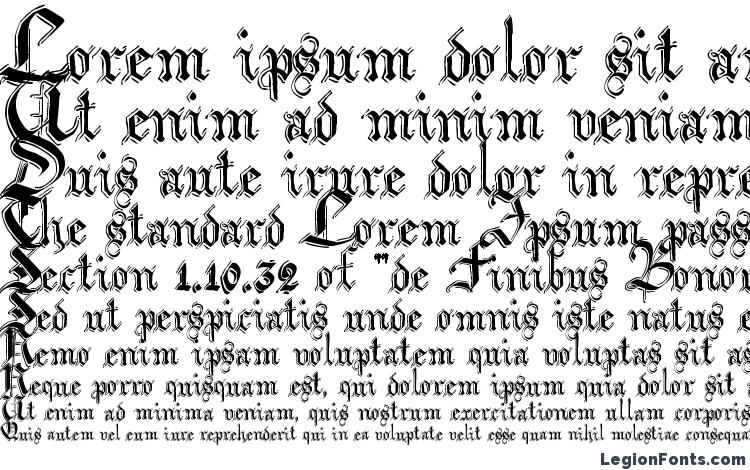 Lorem ipsum dolor sit am
Ut enim ad minim veniam
Duis aute irure dolor in repre
The standard Lorem Ipsum pass
Section 1.10.32 of "de Finibus Bonor
Sed ut perspiciatis unde omnis iste natus e
Nemo enim ipsam voluptatem quia voluptas sit as
Neque porro quisquam est, qui dolorem ipsum quia dolor sit
Ut enim ad minima veniam, quis nostrum exercitationem ullam corporis
Quis autem vel eum iure reprehenderit qui in ea voluptate velit esse quam nihil molestiae consequa
LegionFonts.com